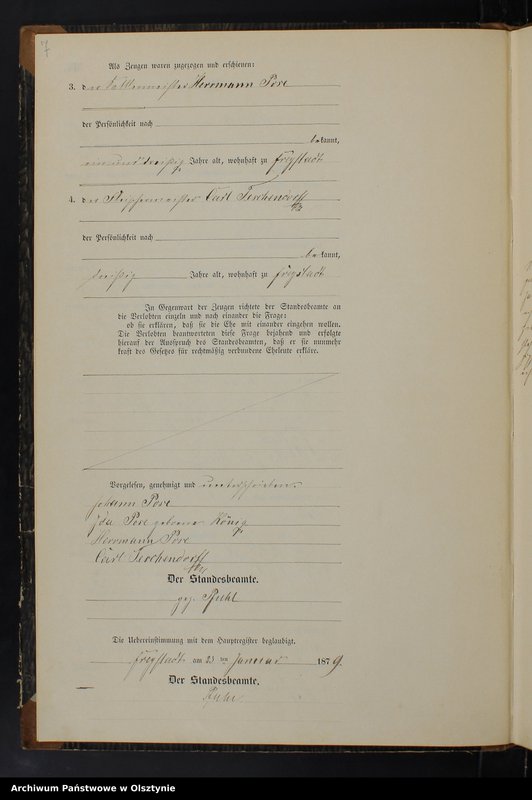 7
Als Zeugen waren zugezogen und erschienen:
3. der Sattlermeister Herrmann Pore
der Persönlichkeit nach
bekannt,
einunddreißig Jahre alt, wohnhaft zu Freystadt
4. der Carl Ferchendorff
der Persönlichkeit nach
bekannt,
dreißig Jahre alt, wohnhaft zu Freystadt
In Gegenwart der Zeugen richtete der Standesbeamte an
die Verlobten einzeln und nach einander die Frage:
ob sie erklären, daß sie die Ehe mit einander eingehen wollen.
Die Verlobten beantworteten diese Frage bejahend und erfolgte
hierauf der Ausspruch des Standesbeamten, daß er sie nunmehr
kraft des Gesetzes für rechtmäßig verbundene Eheleute erkläre.
Vorgelesen, genehmigt und unterschrieben.
Johann Pore
Ida Pore geborene König
Herrmann Pore
Carl Ferchendorff
Der Standesbeamte.
gez.
Die Uebereinstimmung mit dem Hauptregister beglaubigt.
Freystadt am 23 ten Januar 1879.
Der Standesbeamte.
Archiwum Państwowe w Olsztynie